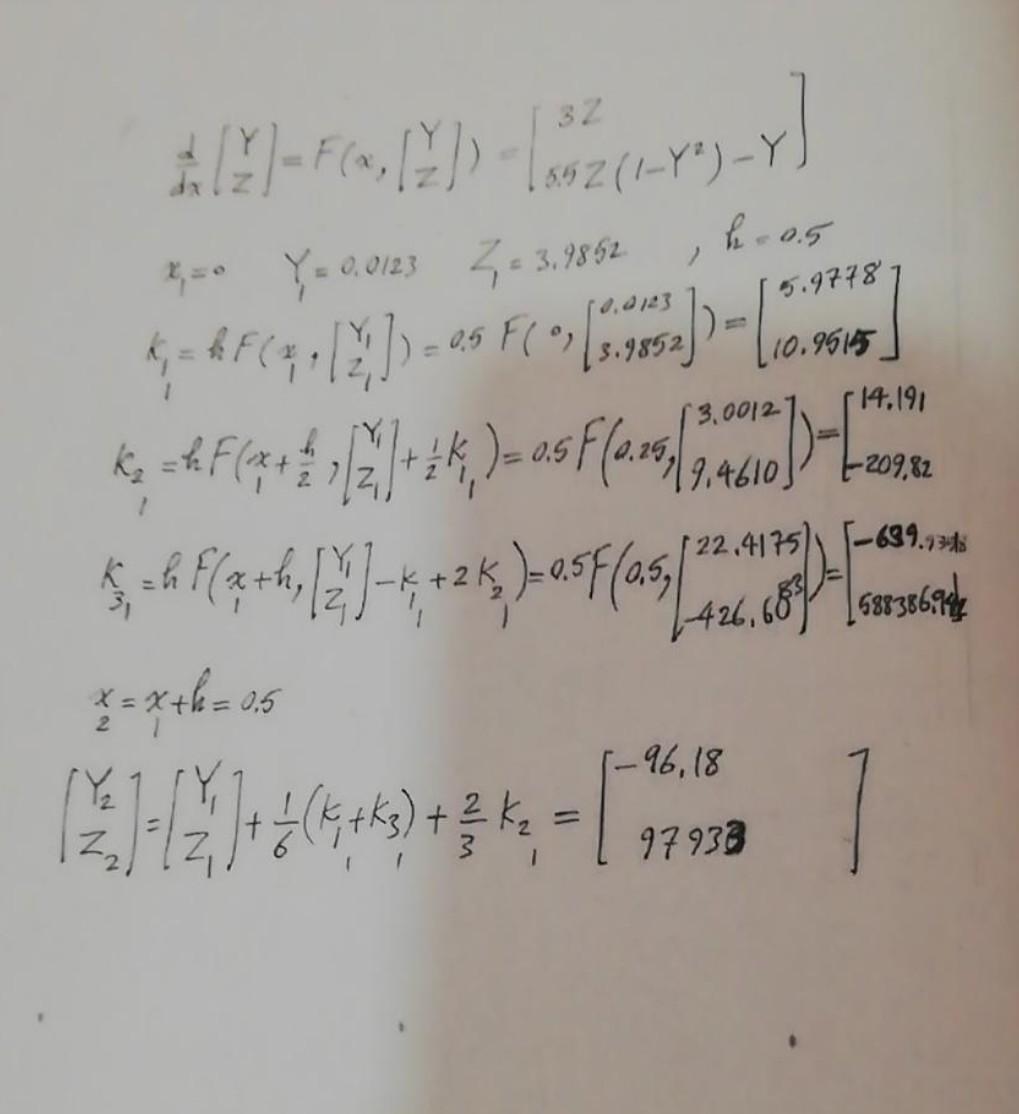 d/dx [Y Z] = F(x, [Y Z]) = [3Z 5.5Z(1-Y²)-Y]
x₁=0 Y₁=0.0123 Z₁=3.9852 , h=0.5
K₁₁ = hF(x₁, [Y₁ Z₁]) = 0.5 F(0, [0.0123 3.9852]) = [5.9778 10.9515]
K₂₁ = hF(x₁+h/2, [Y₁ Z₁]+½K₁₁) = 0.5F(0.25, [3.0012 9.4610]) = [14.191 -209.82]
K₃₁ = hF(x₁+h, [Y₁ Z₁]-K₁₁+2K₂₁) = 0.5F(0.5, [22.4175 -426.6083]) = [-639. 588386.]
x₂ = x₁+h = 0.5
[Y₂ Z₂] = [Y₁ Z₁] + 1/6(K₁₁+K₃₁) + 2/3 K₂₁ = [-96.18 97933]